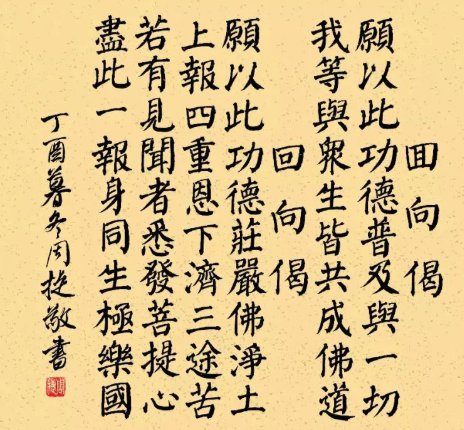 回向偈
願以此功德普及與一切
我等與衆生皆共成佛道
回向偈
願以此功德莊嚴佛淨土
上報四重恩下濟三途苦
若有見聞者悉發菩提心
盡此一報身同生極樂國
丁酉暮冬周挺敬書